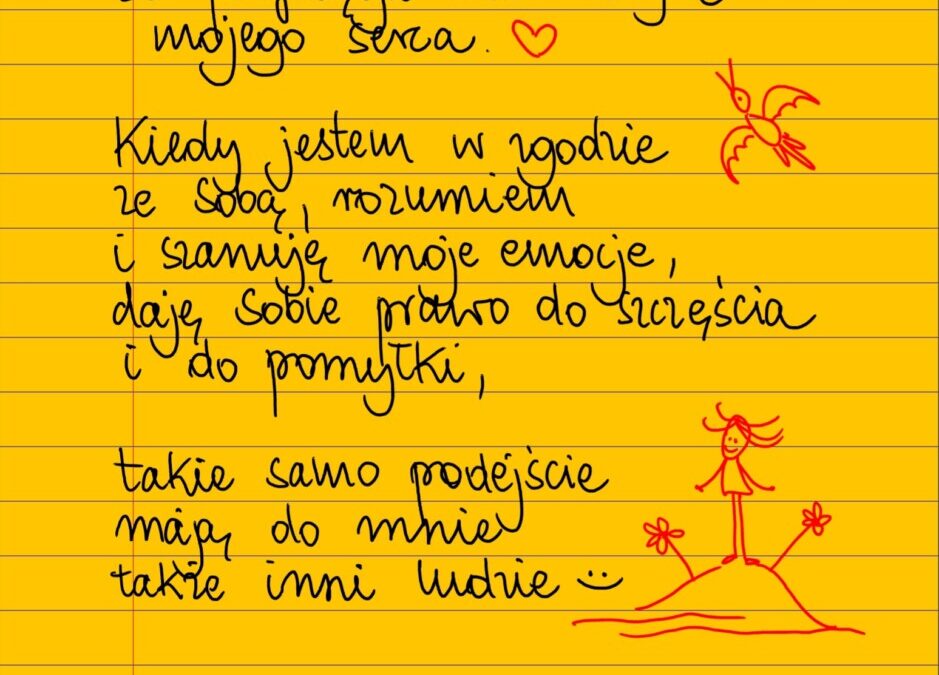 mojego serca.
Kiedy jestem w zgodzie
ze sobą, rozumiem
i szanuję moje emocje,
daję sobie prawo do szczęścia
i do pomyłki,
takie samo podejście
mają do mnie
także inni ludzie :)